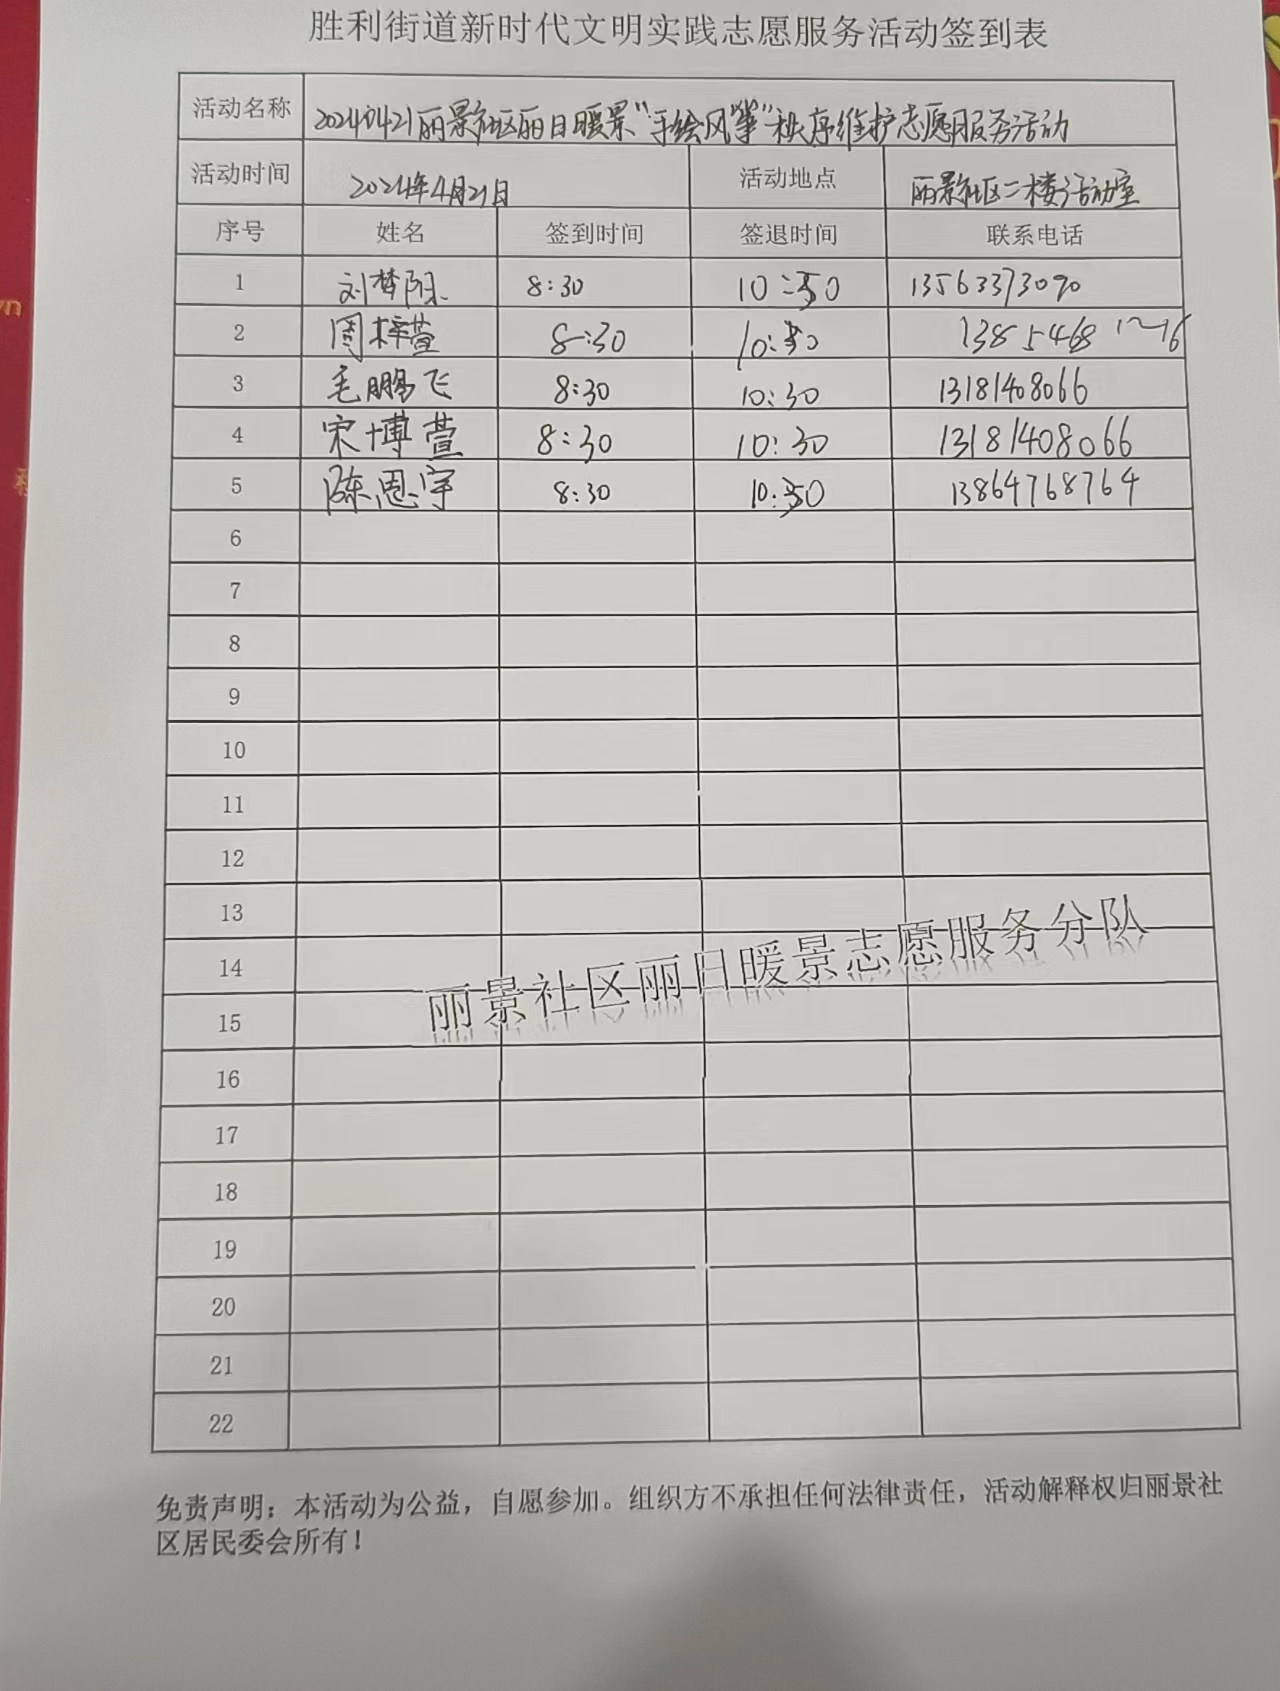 胜利街道新时代文明实践志愿服务活动签到表
活动名称 20240421丽景社区丽日暖景“手绘风筝”秩序维护志愿服务活动
活动时间 2024年4月21日 活动地点 丽景社区二楼活动室
序号 姓名 签到时间 签退时间 联系电话
1 刘梦阳 8:30 10:30 13563373090
2 周梓萱 8:30 10:30 1385468
3 毛鹏飞 8:30 10:30 13181408066
4 宋博萱 8:30 10:30 13181408066
5 陈恩宇 8:30 10:30 13864768764
6
7
8
9
10
11
12
13
14
15
丽景社区丽日暖景志愿服务分队
16
17
18
19
20
21
22
免责声明：本活动为公益，自愿参加。组织方不承担任何法律责任，活动解释权归丽景社
区居民委会所有！